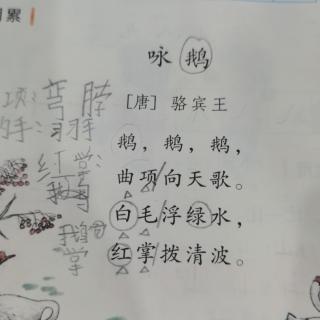 累
咏鹅
[唐] 骆宾王
鹅，鹅，鹅，
曲项向天歌。
白毛浮绿水，
红掌拨清波。
项：弯脖
红掌：
鹅
掌